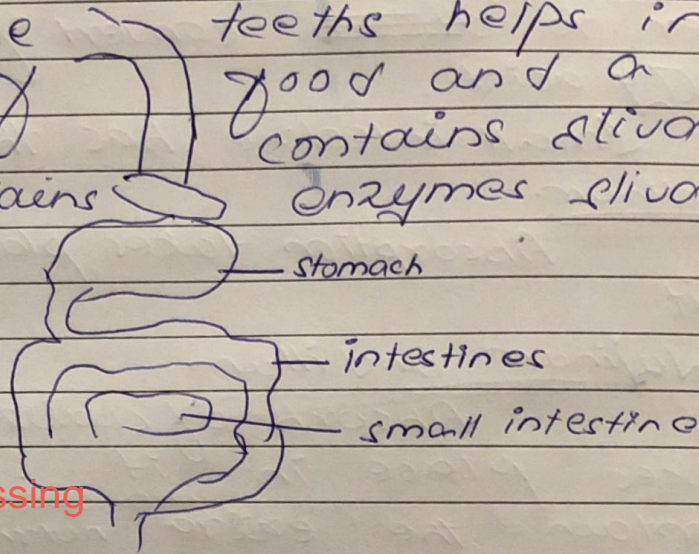 e teeths helps in
good and a
contains sliva
ains enzymes sliva
stomach
intestines
small intestine
ssing